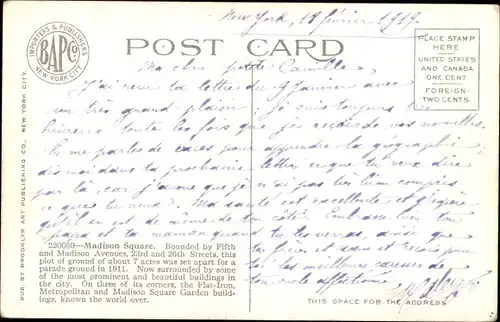 New York, 18 février 1919.
IMPORTERS & PUBLISHERS
B.A.P.Co.
NEW YORK CITY
POST CARD
PLACE STAMP
HERE
UNITED STATES
AND CANADA
ONE CENT
FOREIGN-
TWO CENTS
Ma chère petite Camille,
J'ai reçu ta lettre du 9 Janvier avec
un très grand plaisir, je suis toujours
heureux toutes les fois que je reçois de vos nouvelles.
Tu me parles de cartes pour apprendre la géographie,
dis moi dans ta prochaine lettre ce que tu veux dire
par là, car j'avoue que je n'ai pas très bien compris
ce que tu veux. Ma santé est excellente et j'espère
qu'il en est de même de ton côté. Embrasse bien ton
papa et ta maman quand tu les verras, ainsi que
frère et sœur et recois pour
toi les meilleures caresses de
ton oncle affectionné,
220080—Madison Square. Bounded by Fifth
and Madison Avenues, 23rd and 26th Streets, this
plot of ground of about 7 acres was set apart as a
parade ground in 1811. Now surrounded by some
of the most prominent and beautiful buildings in
the city. On three of its corners, the Flat-Iron,
Metropolitan and Madison Square Garden build-
ings, known the world over.
THIS SPACE FOR THE ADDRESS
PUB. BY BROOKLYN ART PUBLISHING CO., NEW YORK CITY.